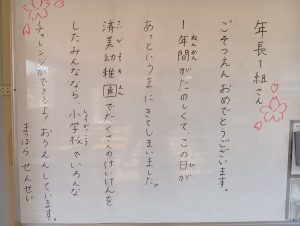 年長1組さん
ごそつえん おめでとうございます。
1年間がたのしくて、この日が
あっというまに きてしまいました。
済美幼稚園でたくさんのけいけんを
したみんななら、小学校でいろんな
チャレンジができるよ！おうえんしています。
まつばら せんせい